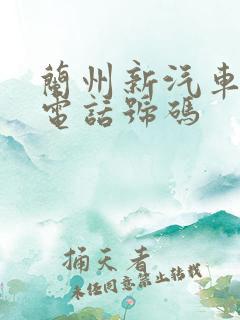 蘭州新汽車
電話號碼
捅天者
未經同意禁止轉載